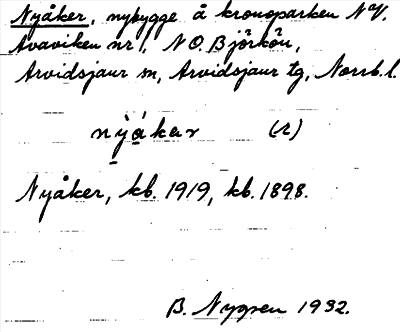 Nyåker, nybygge å kronoparken NV.
Avaviken nr 1, NO. Björkön,
Arvidsjaur sn, Arvidsjaur tg, Norrb. l.
nýåker (r)
Nyåker, kb. 1919, kb. 1898.
B. Nygren 1932.